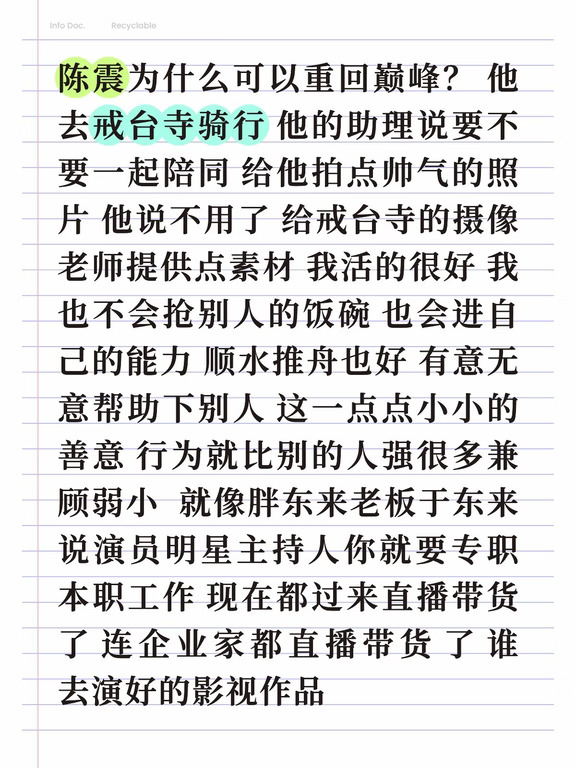 Info Doc. Recyclable
陈震为什么可以重回巅峰? 他
去戒台寺骑行 他的助理说要不
要一起陪同 给他拍点帅气的照
片 他说不用了 给戒台寺的摄像
老师提供点素材 我活的很好 我
也不会抢别人的饭碗 也会进自
己的能力 顺水推舟也好 有意无
意帮助下别人 这一点点小小的
善意 行为就比别的人强很多兼
顾弱小 就像胖东来老板于东来
说演员明星主持人你就要专职
本职工作 现在都过来直播带货
了 连企业家都直播带货 了 谁
去演好的影视作品